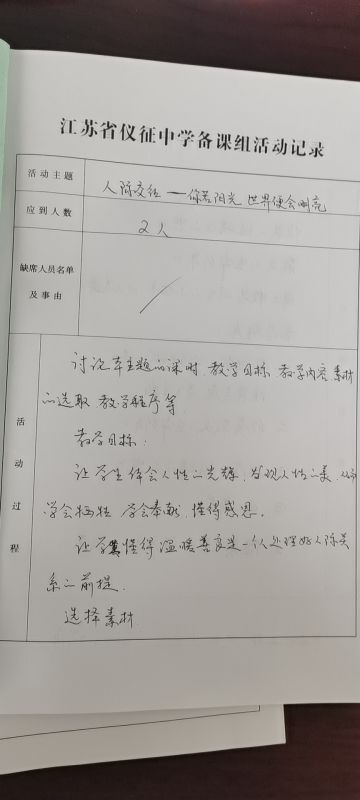 江苏省仪征中学备课组活动记录
活动主题
人际交往——你若阳光 世界便会明亮
应到人数
2人
缺席人员名单
及事由
活动过程
讨论本主题的课时、教学目标、教学内容、素材
的选取、教学程序等
教学目标：
让学生体会人性的光辉，发现人性之美，从而
学会牺牲 学会奉献，懂得感恩。
让学懂得温暖善良是一个人处理好人际关
系的前提.
选择素材